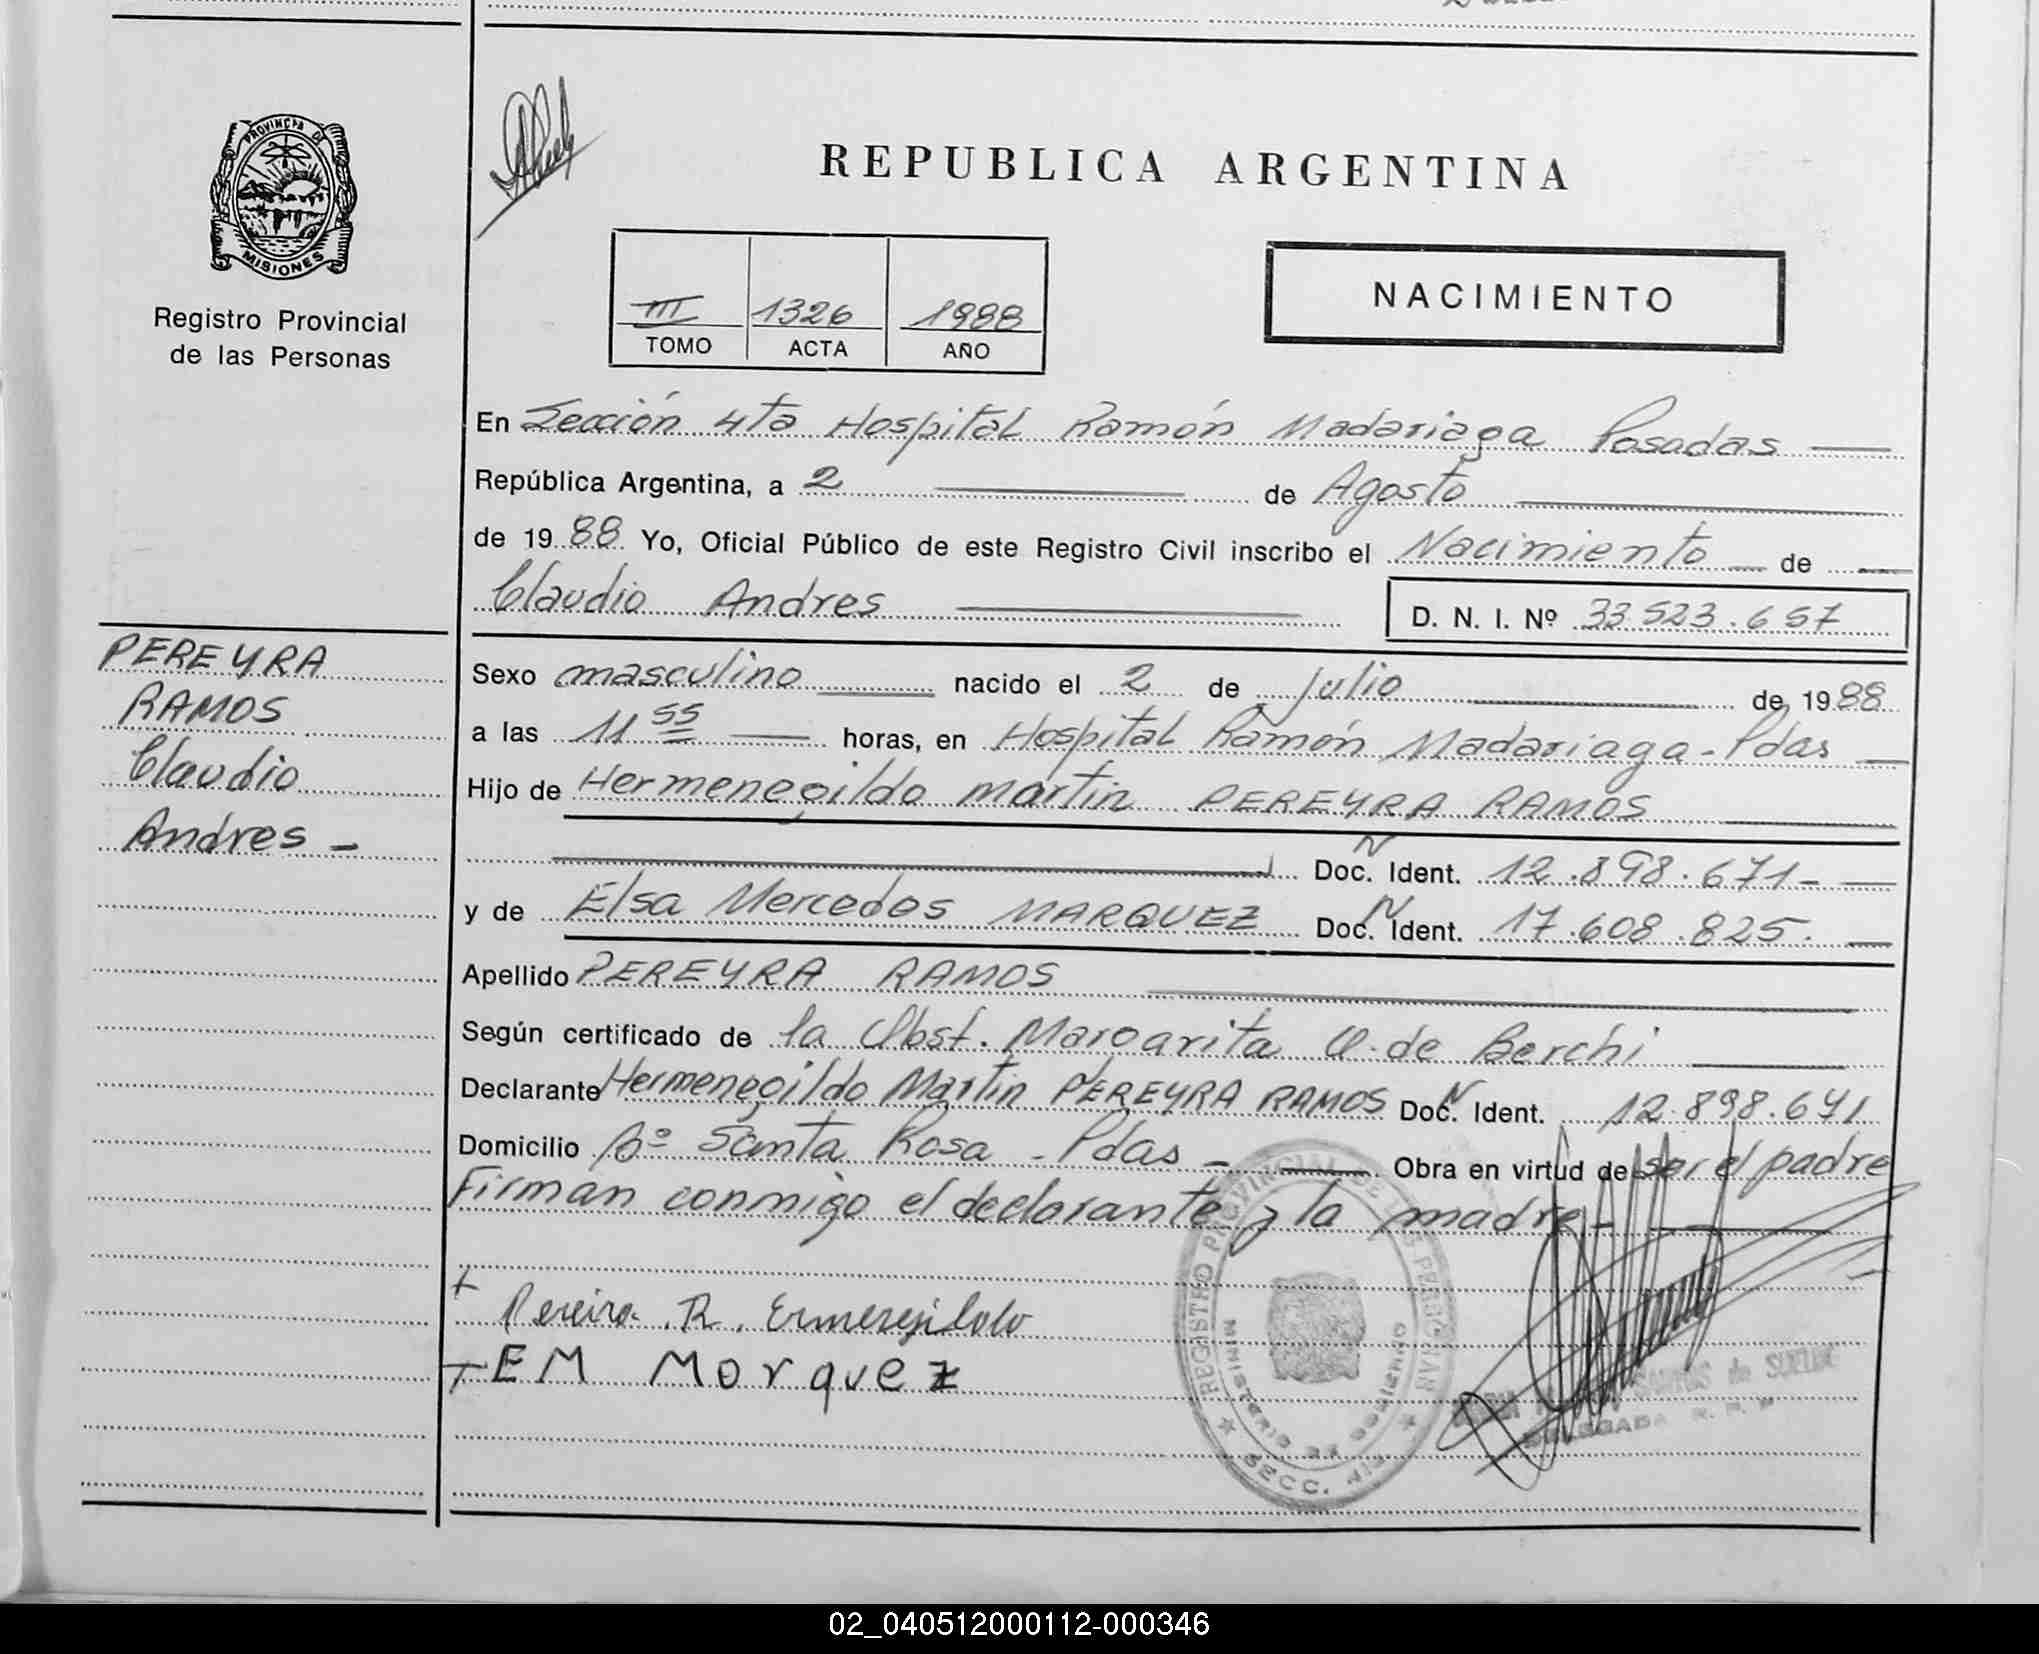 PROVINCIA DE
MISIONES
Registro Provincial
de las Personas
REPUBLICA ARGENTINA
III 1326 1988
TOMO ACTA AÑO
NACIMIENTO
En Sección 4ta Hospital Ramón Madariaga Posadas
República Argentina, a 2 de Agosto
de 1988 Yo, Oficial Público de este Registro Civil inscribo el Nacimiento de
Claudio Andres D. N. I. Nº 33.523.657
PEREYRA
RAMOS
Claudio
Andres -
Sexo masculino nacido el 2 de Julio de 1988
a las 11 55 horas, en Hospital Ramón Madariaga - Pdas
Hijo de Hermenegildo Martin PEREYRA RAMOS
Doc. N Ident. 12.898.671-
y de Elsa Mercedes MARQUEZ Doc. N Ident. 17.608.825.
Apellido PEREYRA RAMOS
Según certificado de la Obst. Margarita Q. de Berchi
Declarante Hermenegildo Martin PEREYRA RAMOS Doc. N Ident. 12.898.671
Domicilio Bº Santa Rosa - Pdas - Obra en virtud de ser el padre
Firman conmigo el declarante y la madre -
Pereira. R. Ermenegildo
EM Morquez
REGISTRO PROVINCIAL DE LAS PERSONAS
MINISTERIO DE GOBIERNO
SECC. 4ta
SANTOS de SUELDO
DELEGADA R. P. P
02_040512000112-000346